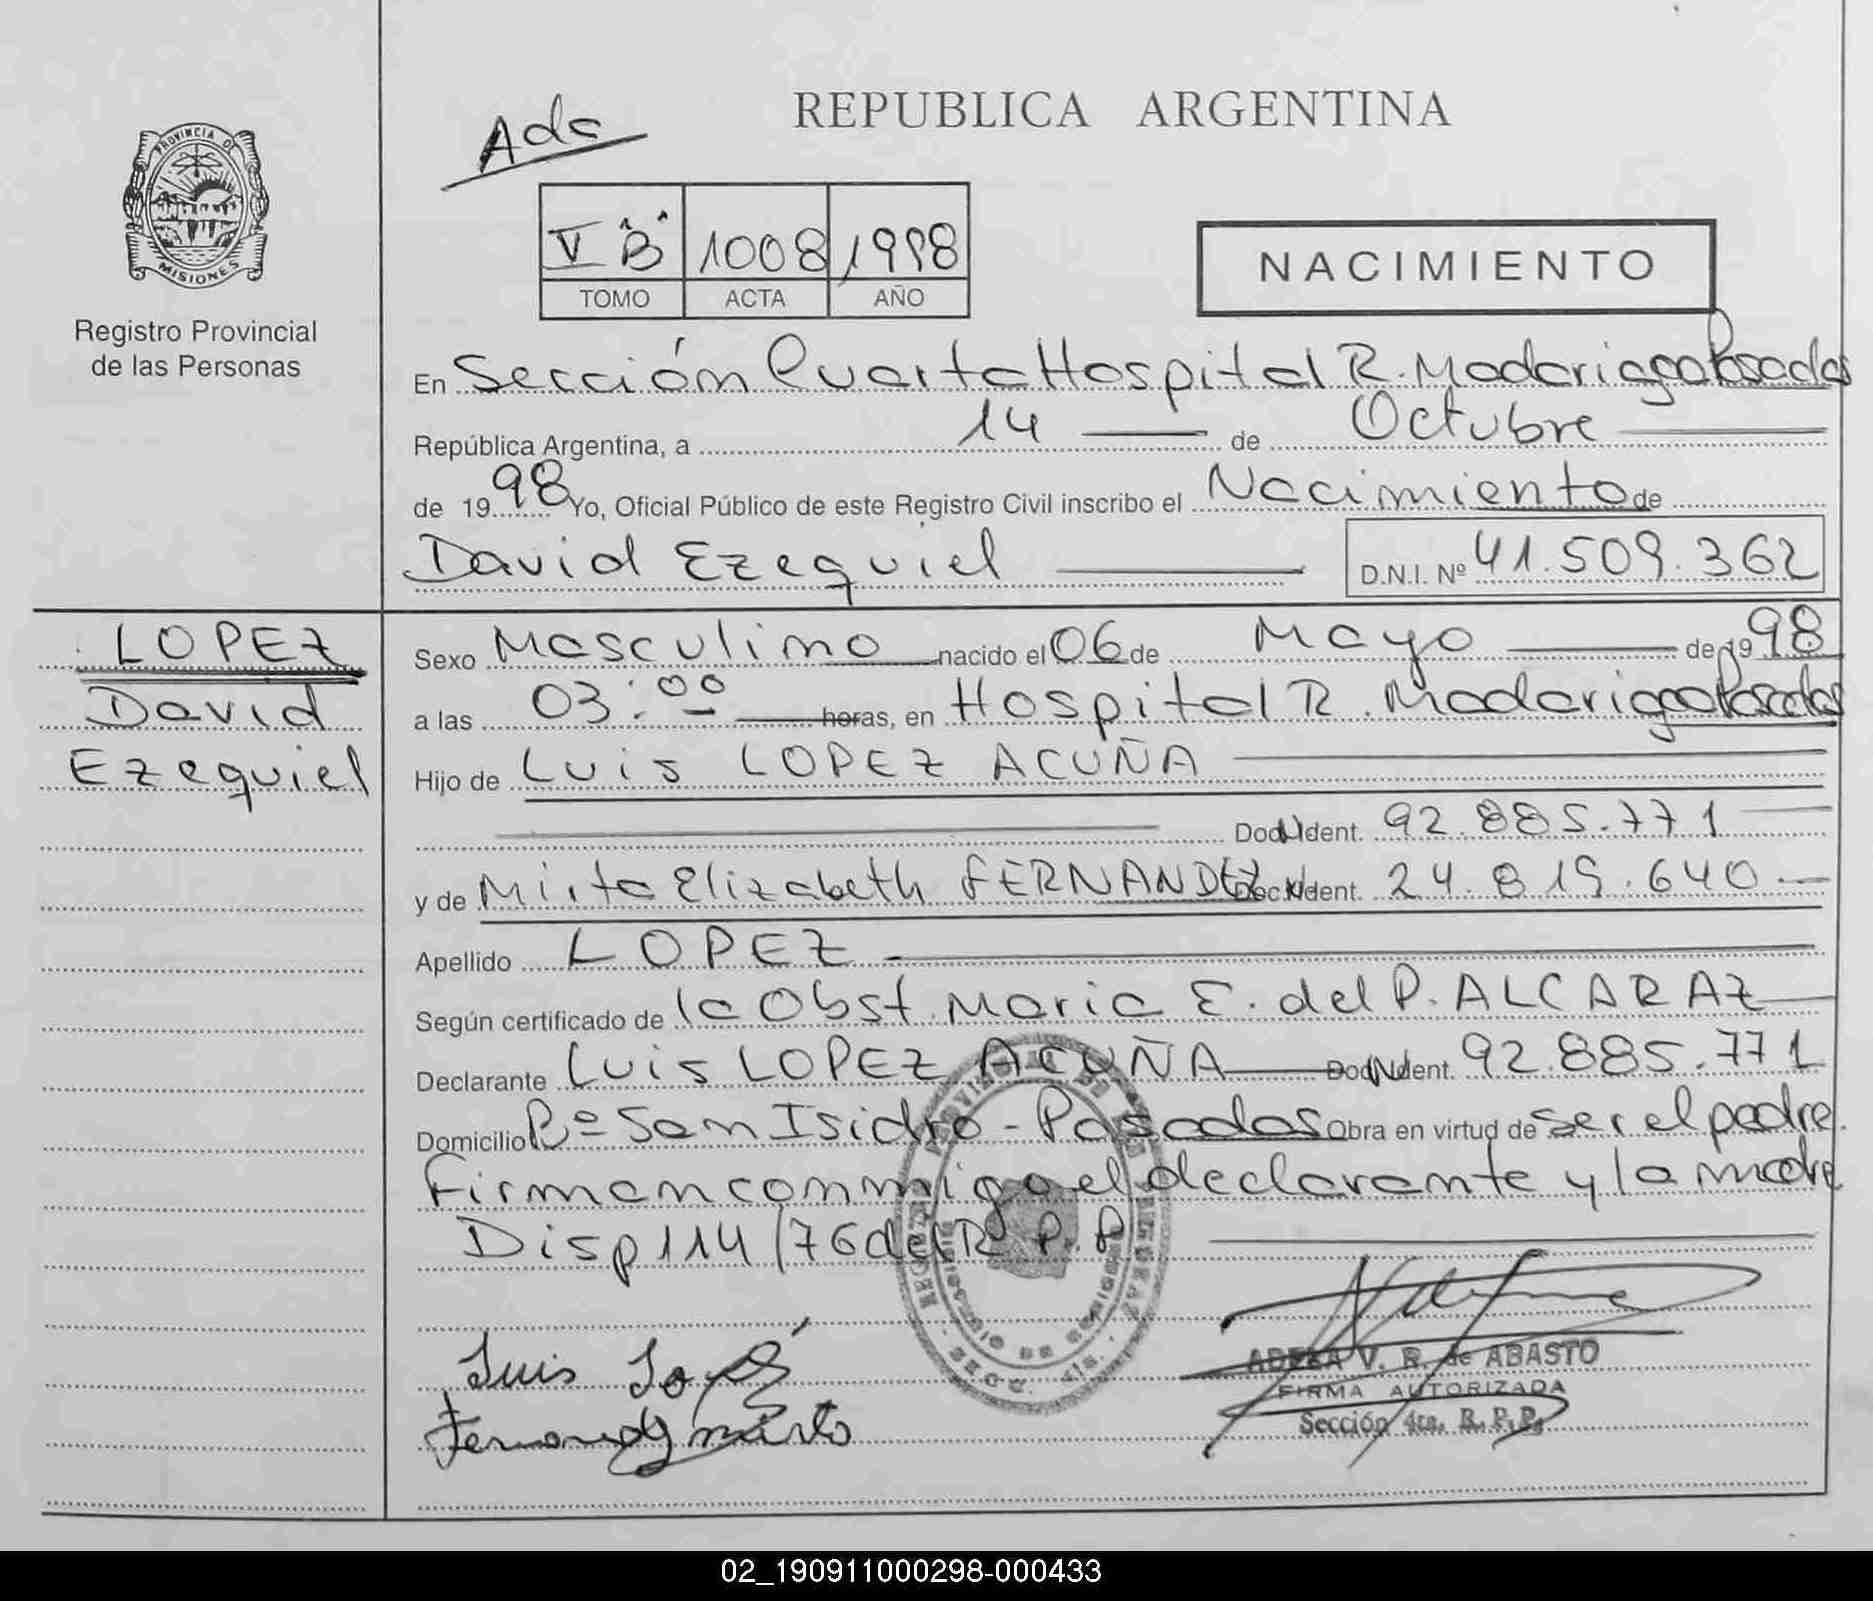 Ada
REPUBLICA ARGENTINA
PROVINCIA DE
MISIONES
Registro Provincial
de las Personas
V "B" 1008 1998
TOMO ACTA AÑO
NACIMIENTO
En Sección Cuarta Hospital R. Madariaga Posadas
República Argentina, a 14 de Octubre
de 1998 Yo, Oficial Público de este Registro Civil inscribo el Nacimiento de
David Ezequiel D.N.I. Nº 41.509.362
LOPEZ
David
Ezequiel
Sexo Masculino nacido el 06 de Mayo de 1998
a las 03:00 horas, en Hospital R. Madariaga Posadas
Hijo de Luis LOPEZ ACUÑA
Doc. Ident. 92.885.771
y de Mirta Elizabeth FERNANDEZ Doc. Ident. 24.819.640
Apellido LOPEZ
Según certificado de la Obst. Maria E. del P. ALCARAZ
Declarante Luis LOPEZ ACUÑA Doc. Ident. 92.885.771
Domicilio Bº San Isidro - Posadas Obra en virtud de ser el padre.
Firman conmigo el declarante y la madre
Disp 114/76 del R.P.P.
Luis Lopez
Fernandez Mirta
ADELA V. R. de ABASTO
FIRMA AUTORIZADA
Sección 4ta. R. P. P.
02_190911000298-000433